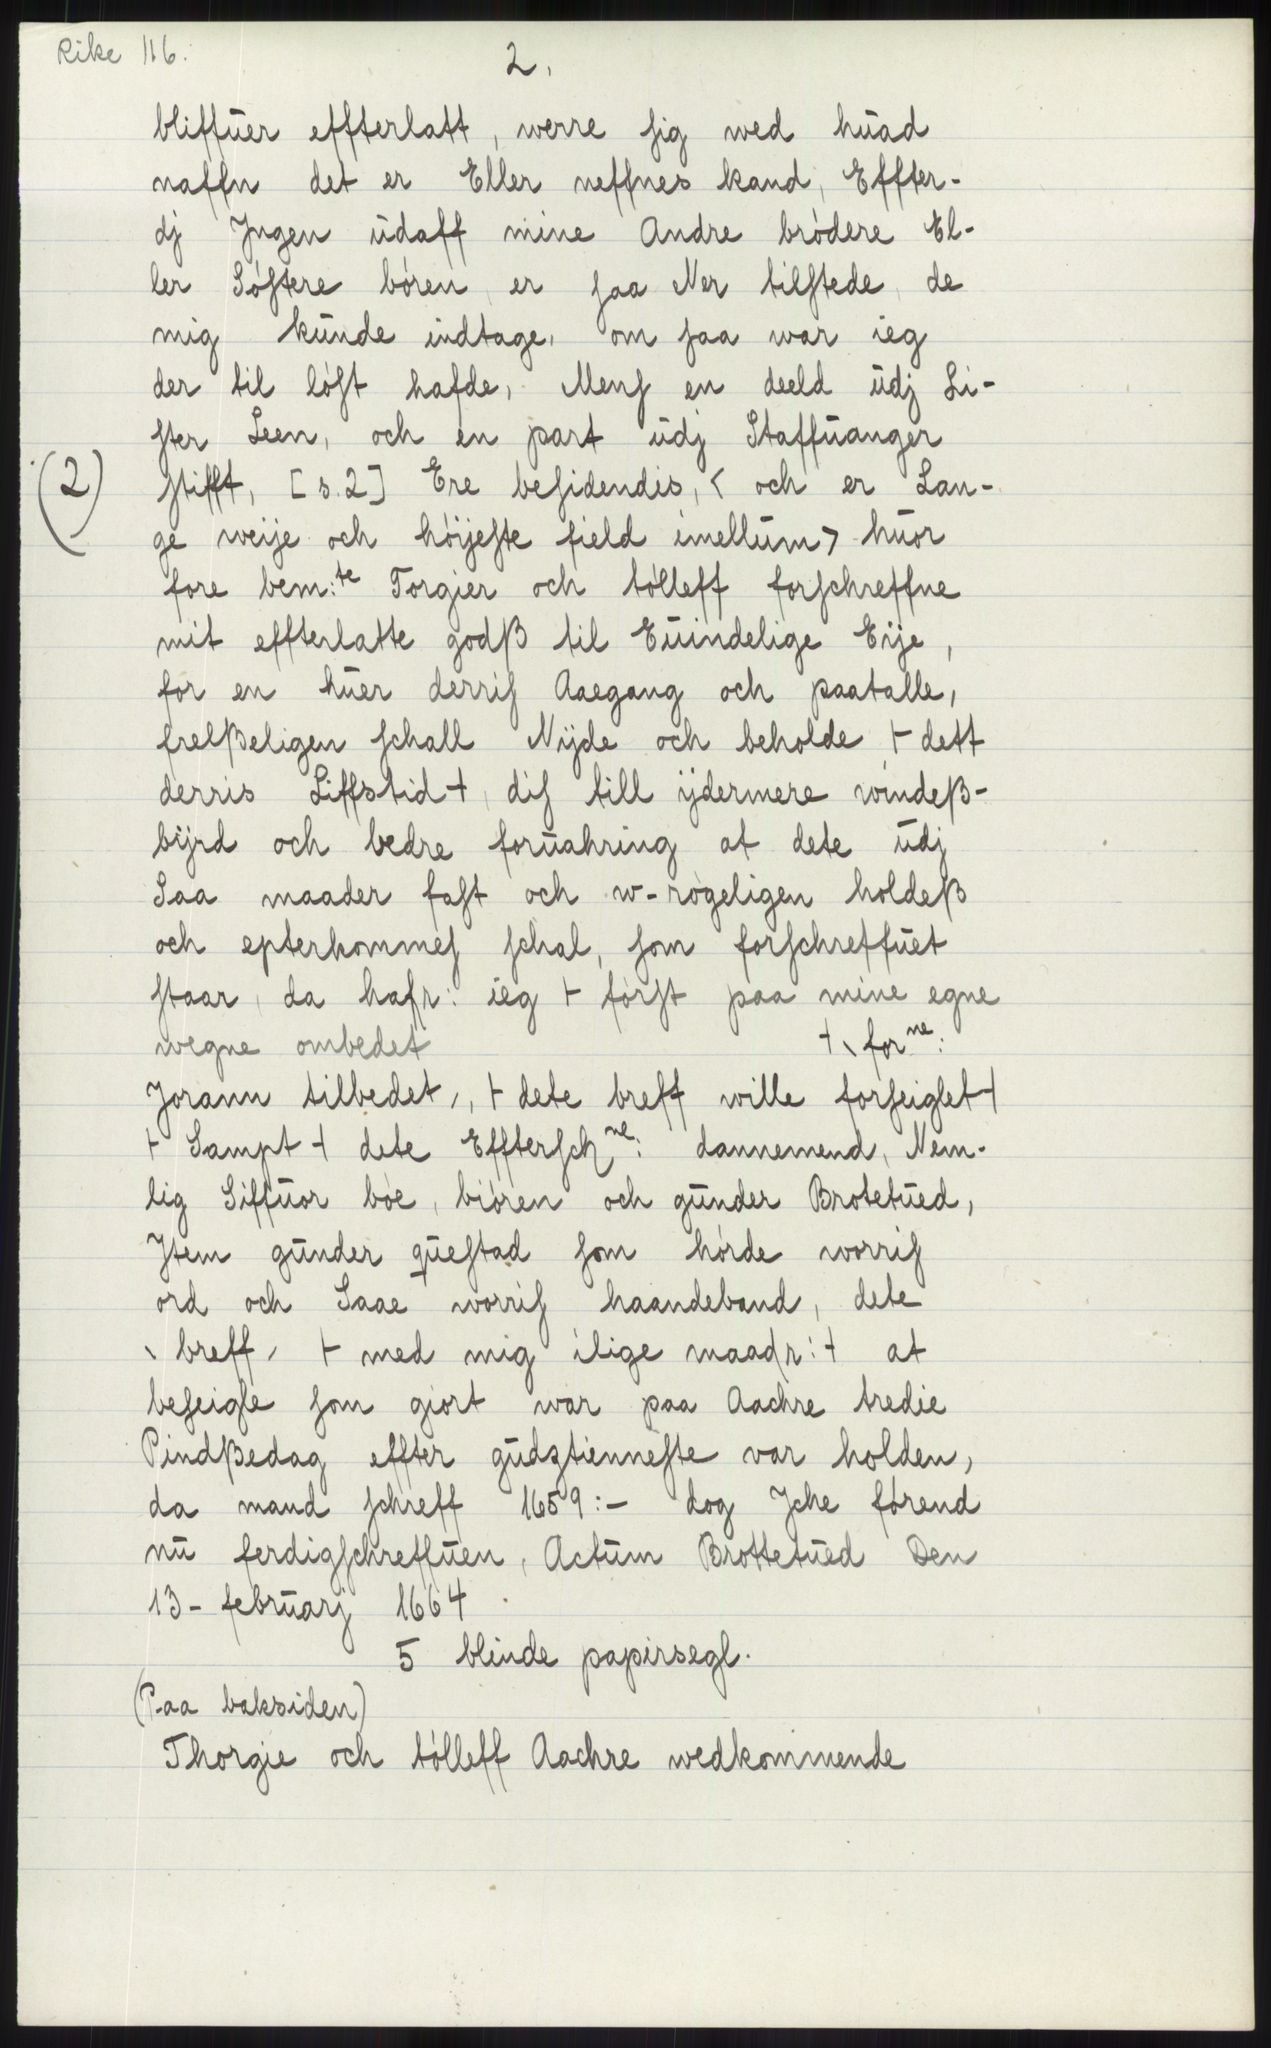 Rike 116.
2.
bliffuer effterlatt, werre sig wed huad
naffn det er Eller neffnes kand, Effter-
dj Jngen udaff mine Andre brødere El-
ler Søstere børen er saa Ner tilstede, de
mig kunde indtage, om saa war ieg
der til løst hafde, Mens en deeld udj Li-
ster Leen, och en part udj Staffuanger
(2) stifft, [s. 2] Ere besidendis, < och er Lan-
ge weije och høijeste field imellum > huor
fore bem:te Torgier och tølleff forschreffne
mit effterlatte godß til Euindelige Eije,
for en huer derris Aaegang och paatalle,
frelßeligen schall Nijde och beholde ⊢ dett
derris Liffstid ⊣, dis till ijdermere windeß-
bijrd och bedre foruahring at dete udj
Saa maader fast och w-rogeligen holdeß
och epterkommes schal, som forschreffuet
staar, da hafr: ieg ⊢ først paa mine egne
wegne ombedet ⊣ \ forne:
Jorann tilbedet /, ⊢ dete breff wille forseiglet ⊣
⊢ Sampt ⊣ dete Effterschne: dannemend, Nem-
lig Siffuor bøe, biøren och gunder Brotetued,
Jtem gunder questad som hørde worris
ord och Saae worris haandeband, dete
\ breff / ⊢ med mig ilige maadr: ⊣ at
beseigle som giort war paa Aachre tredie
Pindßedag effter gudztienneste var holden,
da mand schreff 1659:- dog Jche førend
nu ferdigschreffuen, Actum Brottetued Den
13- februarj 1664.
5 blinde papirsegl.
(Paa baksiden)
Thorgie och tølleff Aachre wedkommende